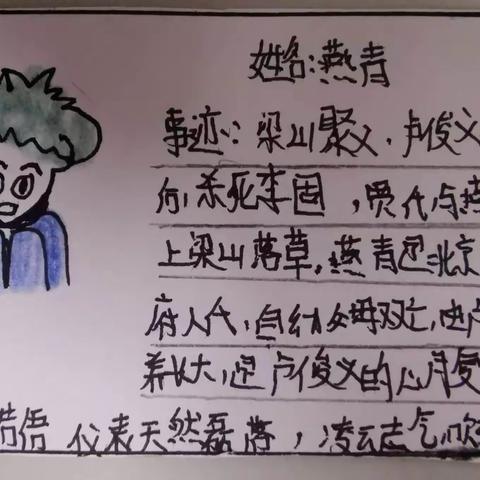 姓名:燕青
事迹:梁山聚义,卢俊义
杀死李固,贾氏与燕
上梁山落草,燕青是北京
府人氏,自幼父母双亡,
养大,是卢俊义的心腹
仪表天然磊落,凌云志气